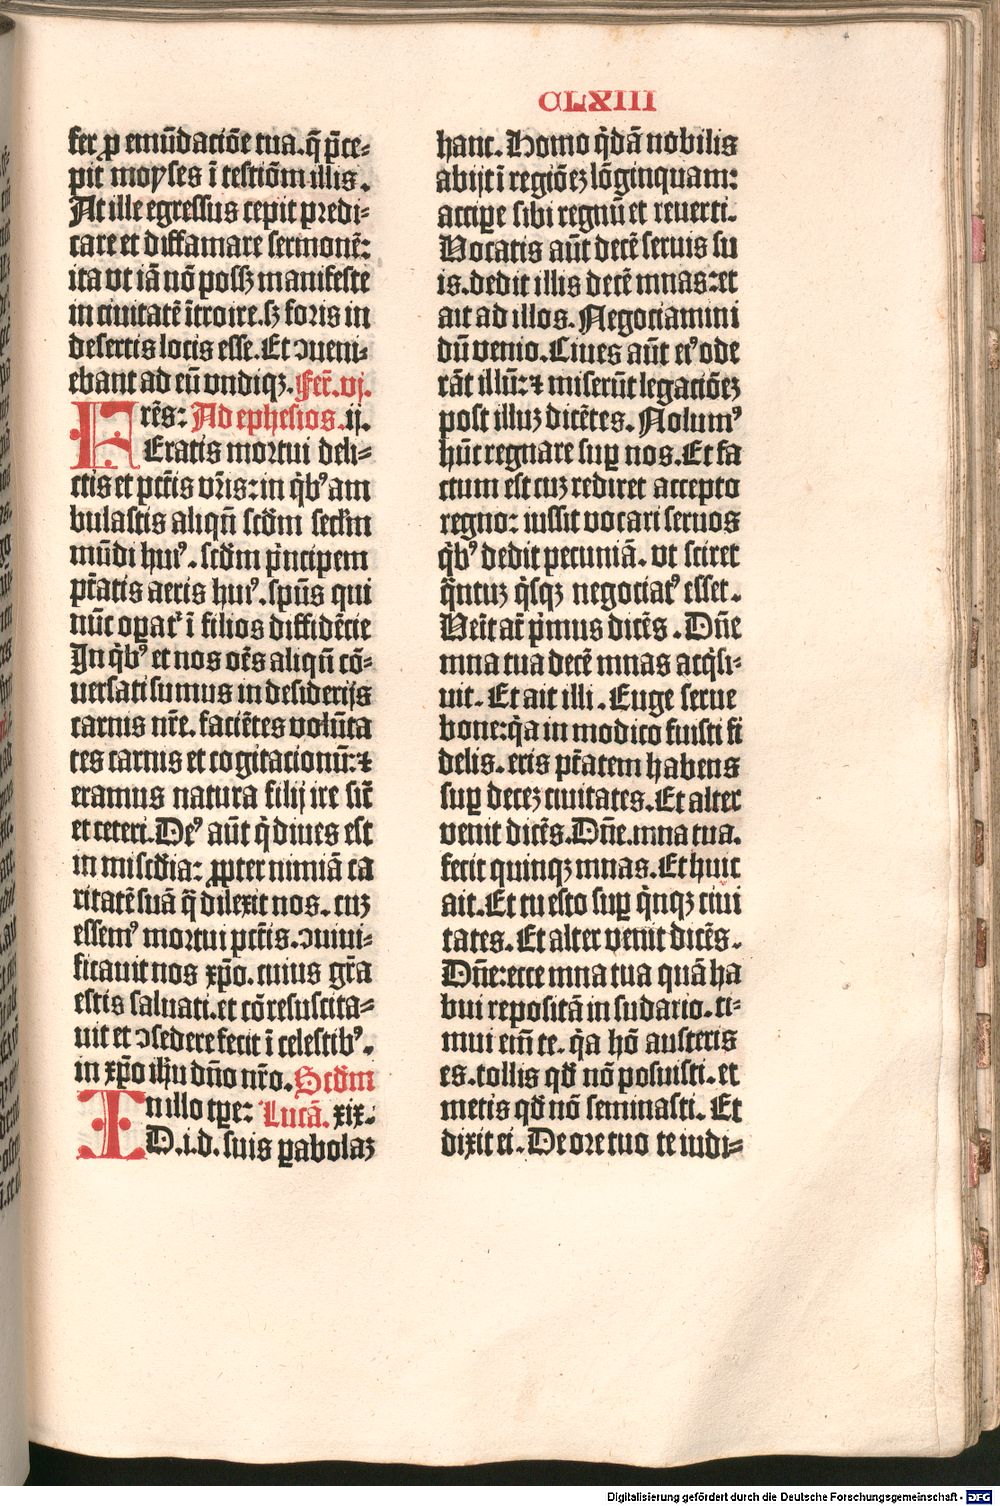 CLXIII
fer ꝓ emūdaciōe tua. q̄ p̄ce⸗
pit moyses ī testiōm illis.
At ille egressus cepit predi⸗
care et diffamare sermonē:
ita vt iā nō possꝫ manifeste
in ciuitatē ītroire. sꝫ foris in
desertis locis esse. Et ↄueni⸗
ebant ad eū vndiqꝫ. Fer̄. vj.
Frēs: Ad ephesios. ij.
Eratis mortui deli⸗
ctis et pctīs vr̄is: in q̇bꝰ am
bulastis aliqn̄ scd̄m seclm̄
mūdi huiꝰ. scd̄m pⁱncipem
pt̄atis aeris huiꝰ. spūs qui
nūc oꝑat᷑ ī filios diffidēcie
In q̇bꝰ et nos oēs aliqn̄ cō⸗
uersati sumus in desiderijs
carnis nr̄e. faciētes volūta
tes carnis et cogitacionū: ⁊
eramus natura filij ire sic̄
et ceteri. Deꝰ aūt q̇ diues est
in misc̄dia: ꝓpter nimiā ca
ritatē suā q̄ dilexit nos. cuꝫ
essemꝰ mortui pctīs. ↄuiui⸗
ficauit nos xp̄o. cuius gr̄a
estis saluati. et cōresuscita⸗
uit et ↄsedere fecit ī celestibꝰ.
in xp̄o ih̄u dn̄o nr̄o. Scd̄m
In illo tp̄e: Lucā. xix.
D. i. d. suis ꝑabolaꝫ
hanc. Homo q̇dā nobilis
abijt ī regiōeꝫ lōginquam:
accipe sibi regnū et reuerti.
Vocatis aūt decē seruis su
is. dedit illis decē mnas: et
ait ad illos. Negociamini
dū venio. Ciues aūt eiꝰ ode
rāt illū: ⁊ miserūt legaciōeꝫ
post illuꝫ dicētes. Nolumꝰ
hūc regnare suꝑ nos. Et fa
ctum est cuꝫ rediret accepto
regno: iussit vocari seruos
q̇bꝰ dedit pecuniā. vt sciret
q̄ntuꝫ q̇sqꝫ negociatꝰ esset.
Ven̄it at̄ pⁱmus dicēs. Dn̄e
mna tua decē mnas acq̇si⸗
uit. Et ait illi. Euge serue
bone: q̇a in modico fuisti fi
delis. eris pt̄atem habens
suꝑ deceꝫ ciuitates. Et alter
venit dicēs. Dn̄e. mna tua.
fecit quinqꝫ mnas. Et huic
ait. Et tu esto suꝑ q̇nqꝫ ciui
tates. Et alter venit dicēs.
Dn̄e: ecce mna tua quā ha
bui repositā in sudario. ti⸗
mui eīm te. q̇a hō austeris
es. tollis qd̄ nō posuisti. et
metis qd̄ nō seminasti. Et
dixit ei. De ore tuo te iudi⸗
Digitalisierung gefördert durch die Deutsche Forschungsgemeinschaft - DFG